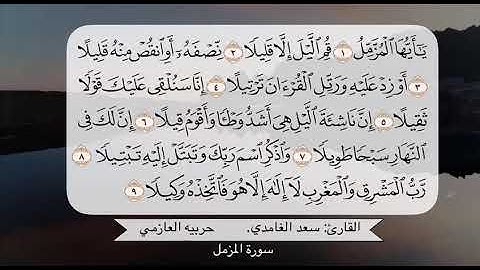 يَٰٓأَيُّهَا ٱلْمُزَّمِّلُ ١ قُمِ ٱلَّيْلَ إِلَّا قَلِيلًا ٢ نِّصْفَهُۥٓ أَوِ ٱنقُصْ مِنْهُ قَلِيلًا
٣ أَوْ زِدْ عَلَيْهِ وَرَتِّلِ ٱلْقُرْءَانَ تَرْتِيلًا ٤ إِنَّا سَنُلْقِى عَلَيْكَ قَوْلًا
ثَقِيلًا ٥ إِنَّ نَاشِئَةَ ٱلَّيْلِ هِىَ أَشَدُّ وَطْـًٔا وَأَقْوَمُ قِيلًا ٦ إِنَّ لَكَ فِى
ٱلنَّهَارِ سَبْحًا طَوِيلًا ٧ وَٱذْكُرِ ٱسْمَ رَبِّكَ وَتَبَتَّلْ إِلَيْهِ تَبْتِيلًا ٨
رَّبُّ ٱلْمَشْرِقِ وَٱلْمَغْرِبِ لَآ إِلَٰهَ إِلَّا هُوَ فَٱتَّخِذْهُ وَكِيلًا ٩
القارئ: سعد الغامدي. حربيه العازمي
سورة المزمل